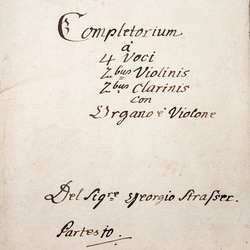 Completorium
à
4 Voci
2bus Violinis
2bus Clarinis
con
Organo è Violone
Del Sigre Georgio Strasser.
Partesto.